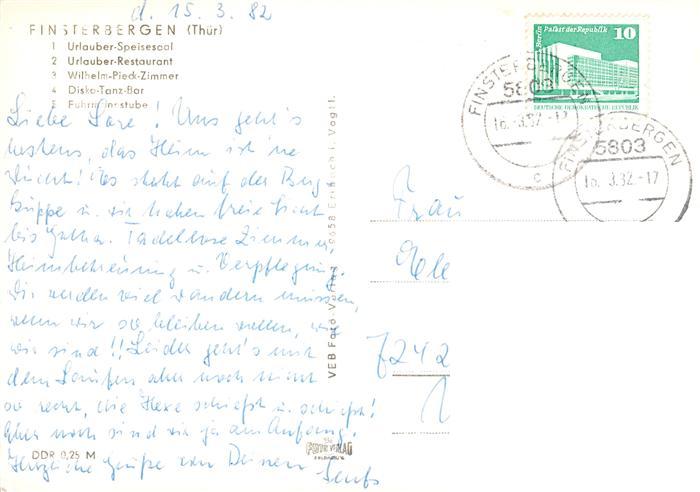 d. 15. 3. 82
FINSTERBERGEN (Thür)
1 Urlauber-Speisesaal
2 Urlauber-Restaurant
3 Wilhelm-Pieck-Zimmer
4 Diska-Tanz-Bar
5 Fuhrmannstube
Liebe Lore! Uns geht's
bestens, das Heim ist 'ne
Wucht! Es steht auf der Berg
kuppe u. wir haben freie Sicht
bis Gotha. Tadellose Zimmer,
Heimbetreuung u. Verpflegung.
Wir werden viel wandern müssen,
wenn wir so bleiben wollen, wie
wir sind!! Leider geht's mit
dem Laufen aber noch nicht
so recht, die Hexe schießt u. schießt!
Aber noch sind wir ja am Anfang.
Herzliche Grüße von Deinen
DDR 0,25 M
VEB Foto-Verlag 9658 Erlbach i. Vogtl.
FOTO-VERLAG
ERLBACH
Berlin Palast der Republik 10
DEUTSCHE DEMOKRATISCHE REPUBLIK
FINSTERBERGEN
5803
16.-3.82.-17
c
FINSTERBERGEN
5803
16.-3.82.-17
Frau
7242